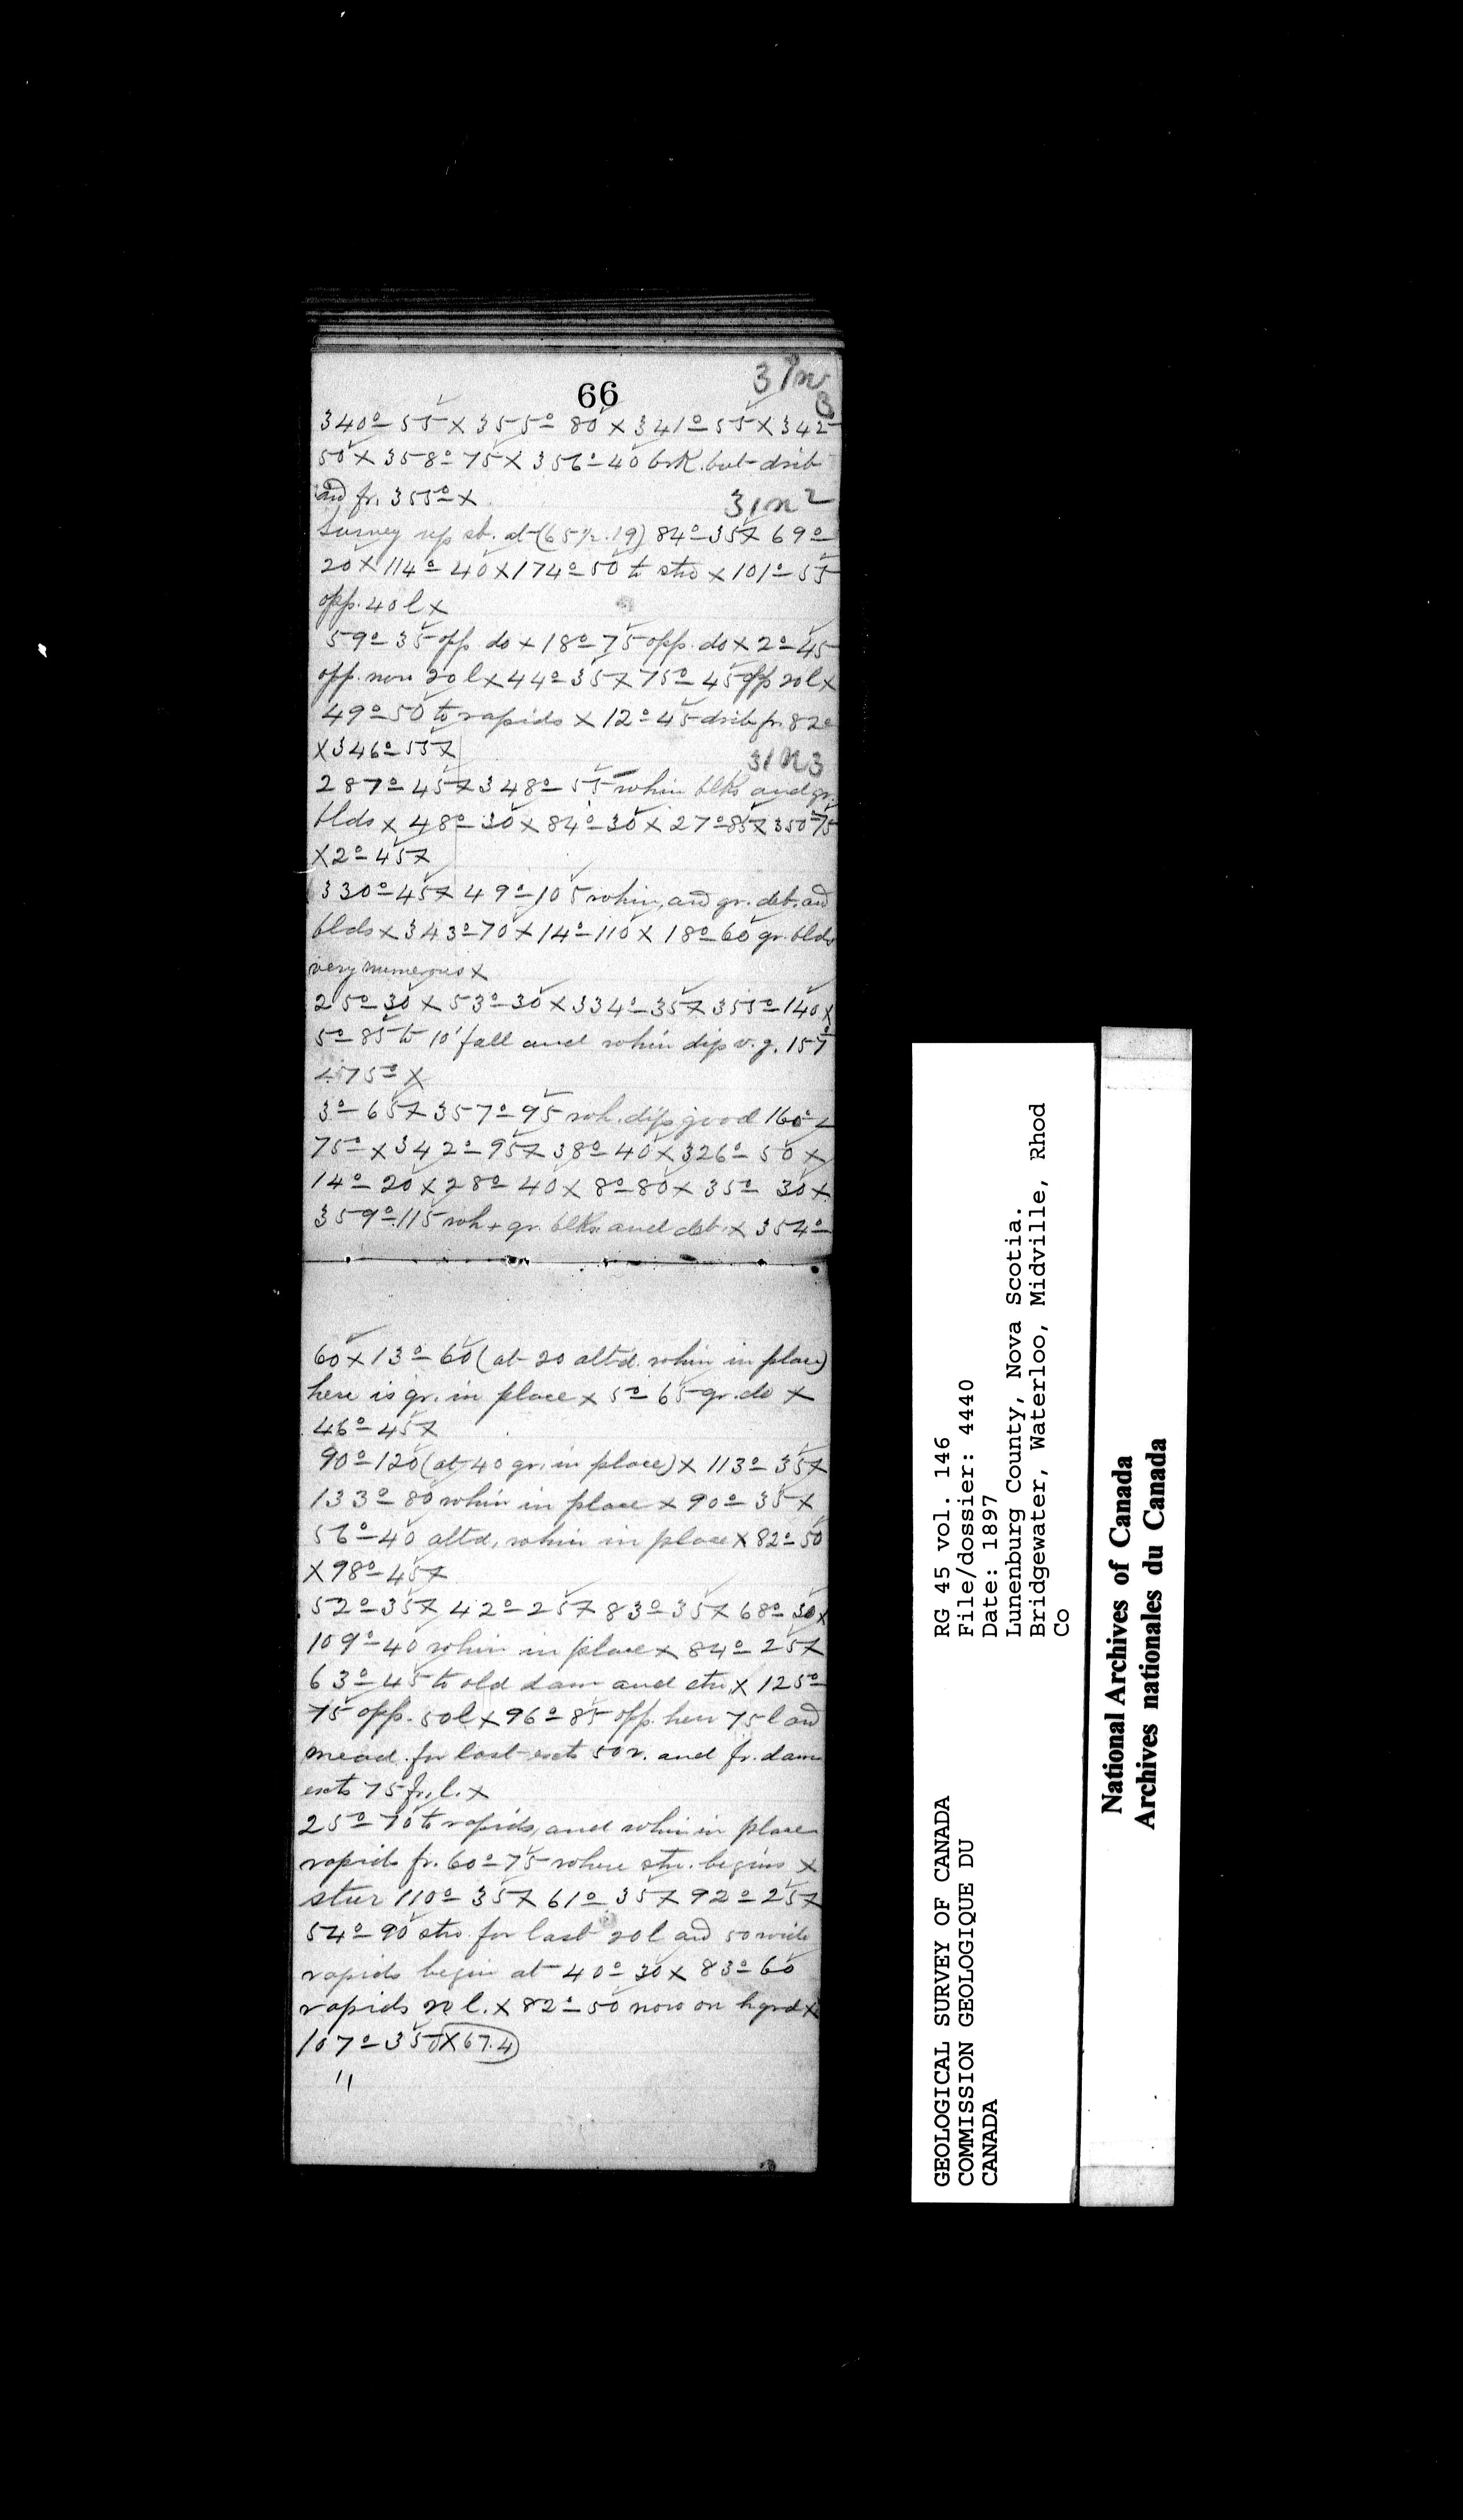 66
31n
340º-55 X 355º 80 X 341º-55 X 342
50 X 358º-75 X 356º-40 brk. but drib
and fr. 355º X
31n2
Survey up st. at (65½.19) 84º-35 X 69º
20 X 114º-40 X 174º-50 to stw X 101º-55
opp. 40 l X
59º-35 opp. do X 18º-75 opp. do X 2º-45
opp. now 20 l X 44º-35 X 75º-45 opp 20 l X
49º-50 to rapids X 12º-45 drib fr. 82º
X 346º-55 X
31n3
287º-45 X 348º-55 whin blks and gr.
blds X 48º-30 X 84º-30 X 27º-85 X 350º-75
X 2º-45 X
330º-45 X 49º-105 whin, and gr. deb. and
blds X 343º-70 X 14º-110 X 18º-60 gr. blds
very numerous X
25º-30 X 53º-30 X 334º-35 X 355º-140 X
5º-85 to 10' fall and whin dip v.g. 157º
∠75º X
3º-65 X 357º-95 wh. dip good 160º ∠
75º X 342º-95 X 38º-40 X 326º-50 X
14º-20 X 28º-40 X 8º-80 X 35º-30 X
359º-115 wh + gr. blks and deb. X 354º
60 X 13º-60 (at 20 altd. whin in place)
here is gr. in place X 5º-65 gr. do X
46º-45 X
90º-120 (at 40 gr. in place) X 113º-35 X
133º-80 whin in place X 90º-35 X
56º-40 altd, whin in place X 82º-50
X 98º-45 X
52º-35 X 42º-25 X 83º-35 X 68º-30 X
109º-40 whin in place X 84º-25 X
63º-45 to old dam and stw X 125º
75 opp. 50 l X 96º-85 opp. here 75 l and
mead. for last exts 50 r. and fr. dam
exts 75 fr. l. X
25º-70 to rapids, and whin in place
rapids fr. 60º-75 where stw. begins X
110º-35 X 61º-35 X 92º-25 X
54º-90 stw for last 20 l and 50 wide
rapids begin at 40º-30 X 83º-60
rapids 20 l. X 82º-50 now on hgrd X
107º-350 X 67.4
"
GEOLOGICAL SURVEY OF CANADA
COMMISSION GEOLOGIQUE DU
CANADA
RG 45 vol. 146
File/dossier: 4440
Date: 1897
Lunenburg County, Nova Scotia.
Bridgewater, Waterloo, Midville, Rhod
Co
National Archives of Canada
Archives nationales du Canada